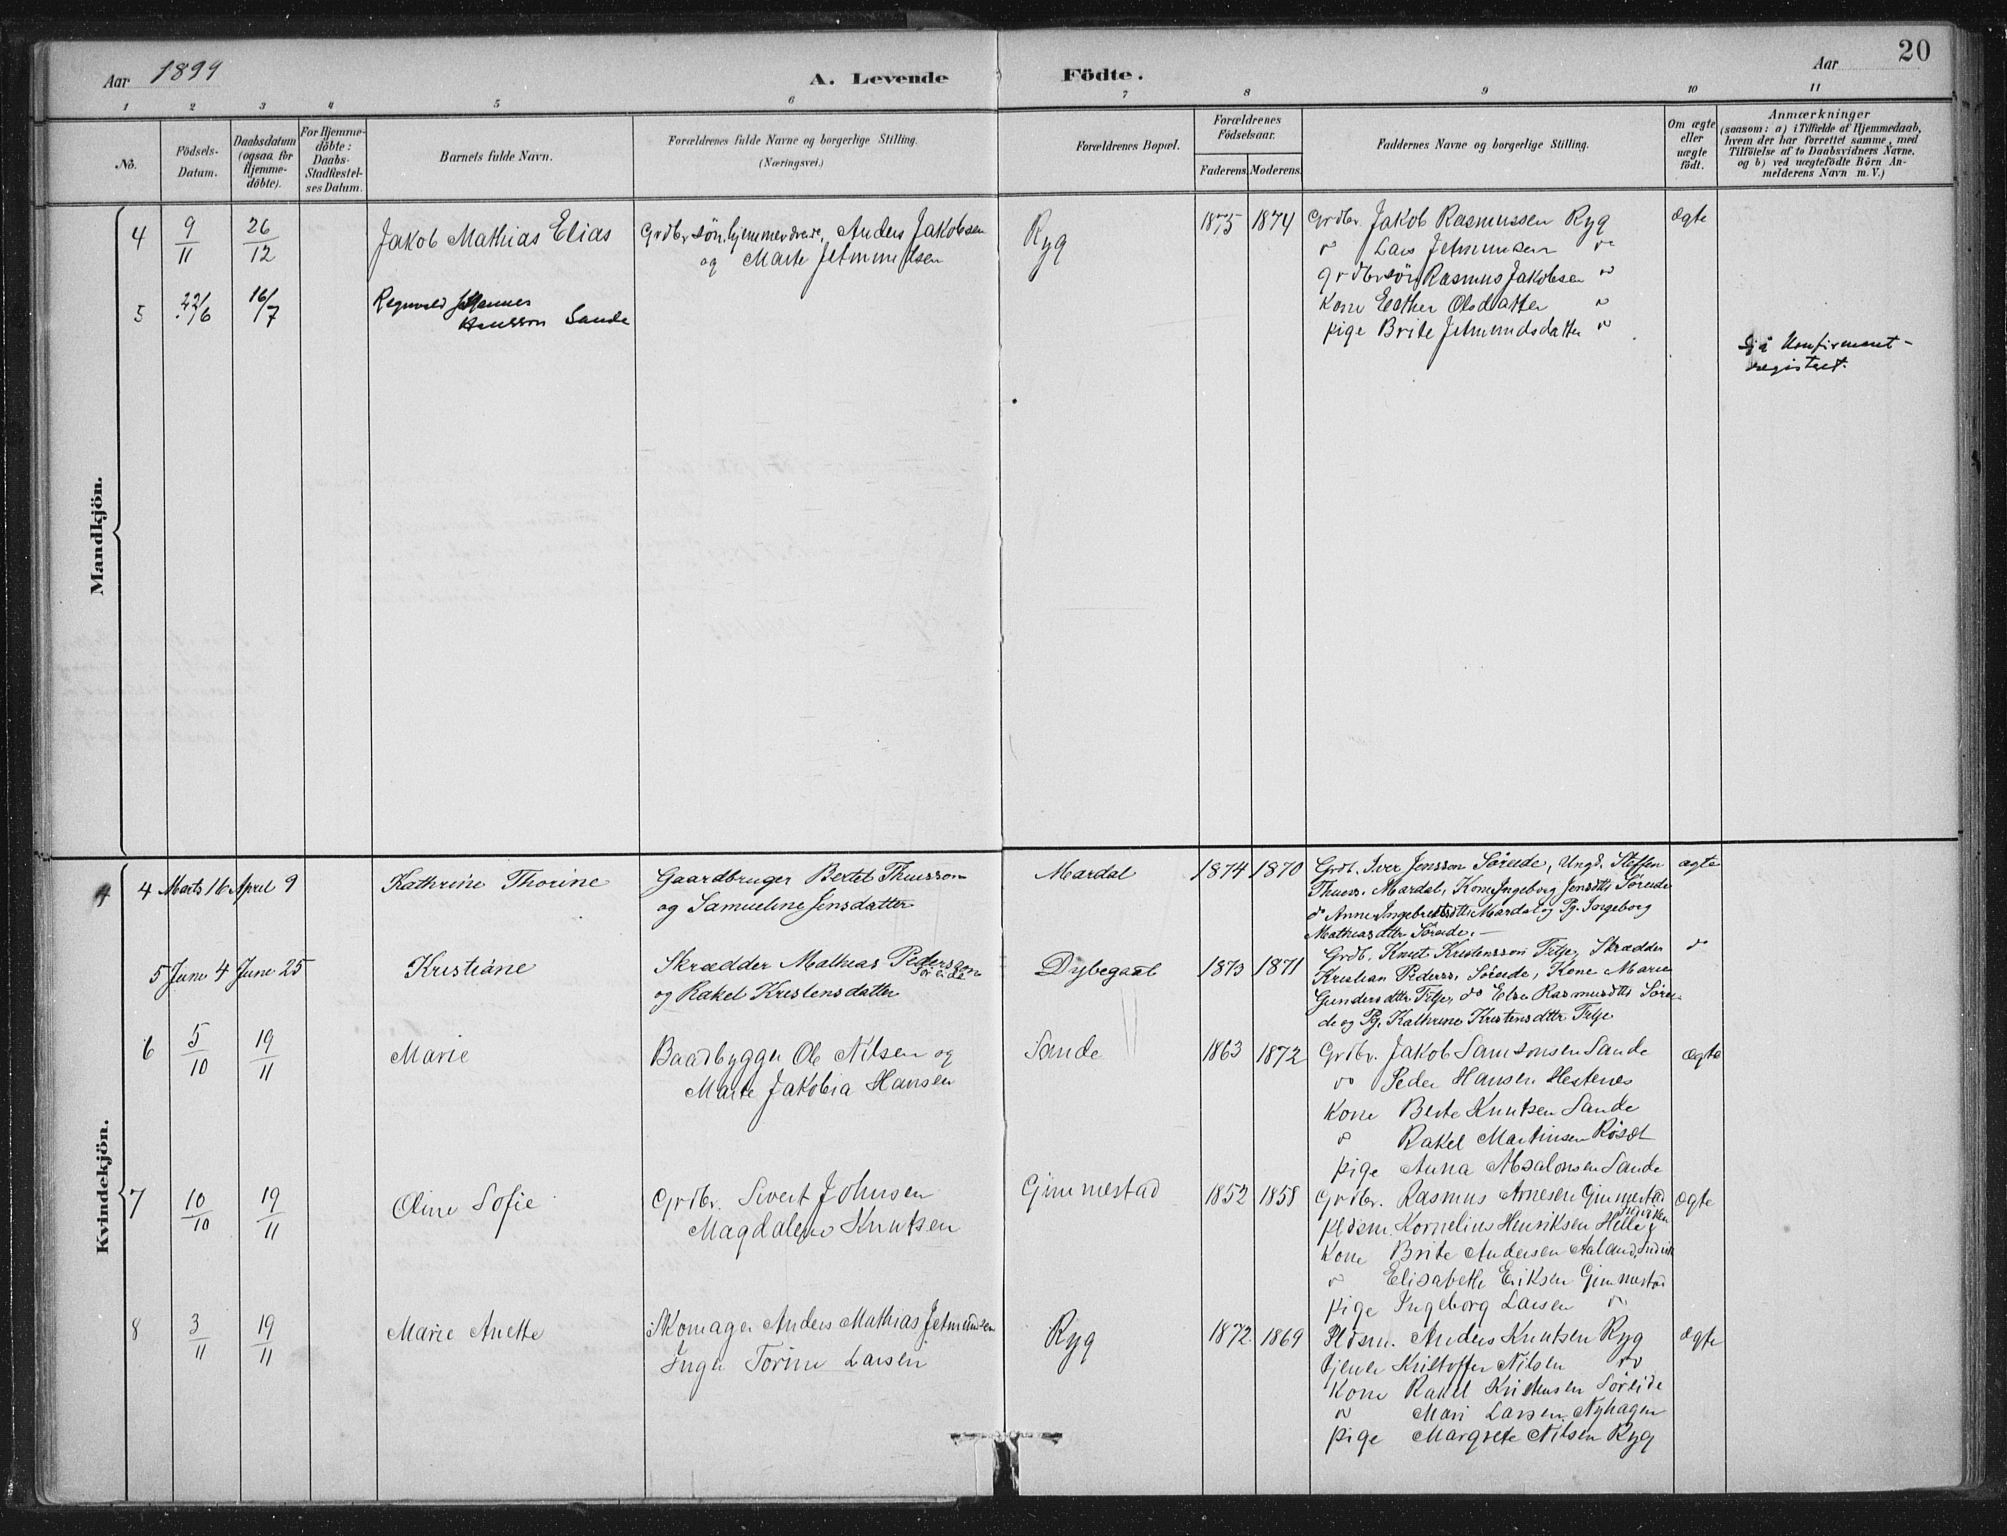 20
Aar 1899
A. Levende Födte.
Aar
1 2 3 4 5 6 7 8 9 10 11
No.
Födsels-Datum.
Daabsdatum (ogsaa for Hjemme-döbte).
For Hjemme-döbte: Daabs-Stadfæstel-ses Datum.
Barnets fulde Navn.
Forældrenes fulde Navne og borgerlige Stilling.
(Næringsvei.)
Forældrenes Bopæl.
Forældrenes Födselsaar.
Faderens. Moderens.
Faddernes Navne og borgerlige Stilling.
Om ægte eller uægte födt.
Anmærkninger
(saasom: a) i Tilfælde af Hjemmedaab,
hvem der har forrettet samme, med
Tilföielse af to Daabsvidners Navne,
og b) ved uægtefödte Börn An-
melderens Navn m. V.)
Mandkjön.
4 9/11 26/12 Jakob Mathias Elias
Grdbr sön, hjemmeværende, Anders Jakobsen
og Marte Jetmundsen
Ryg 1875 1874
Grdbr. Jakob Rasmussen Ryg
do Lars Jetmundsen do
Grdbrsön Rasmus Jakobsen do
Kone Esther Olsdatter do
Pige Brite Jetmundsdatter do
Ægte
5 22/6 16/7 Regnvald Johannes
Hansson Sande
Sjå Konfirmant-
registeret.
Kvindekjön.
4 Marts 16 April 9 Kathrine Thorine
Gaardbruger Bertel Thuesson
og Samueline Jensdatter
Mardal 1874 1870
Grdb. Iver Jensson Söreide, Ungk. Steffen
Thuess. Mardal, Kone Ingeborg Jensdtter Söreide
do Anne Ingebretsdtter Mardal og Pg. Ingeborg
Mathiasdtter Söreide.
ægte
5 Juni 4 Juni 25 Kristiane
Skrædder Mathias Pedersson
Söreide
og Rakel Kristensdatter
Dybegaat 1873 1871
Grdb. Knut Kristensson Felje, Skrædder
Kristian Pederss. Söreide, Kone Marie
Gundersdtter Felje, do Else Rasmusdtter Sörei-
de og Pg. Kathrine Kristensdtter Felje
do
6 5/10 19/11 Marie
Baadbygger Ole Nilsen og
Marte Jakobia Hansen
Sande 1863 1872
Grdbr. Jakob Samsonsen Sande
do Peder Hansen Hestenes
Kone Berte Knutsen Sande
do Rakel Martinsen Rösæt
Pige Anna Absalonsen Sande
Ægte
7 10/10 19/11 Oline Sofie
Grdbr. Sivert Johnsen
Magdalene Knutsen
Gimmestad 1852 1858
Grdbr. Rasmus Arnesen Gimmestad
Pldsm. Kornelius Henriksen Helle, Indviken
Kone Brite Andersen Aaland, Indvik
do Elisabeth Eriksen Gimmestad
Pige Ingeborg Larsen do
Ægte
8 3/11 19/11 Marie Anette
Skomager Anders Mathias Jetmundsen
Inger Torine Larsen
Ryg 1872 1869
Pldsm. Anders Knutsen Ryg
Tjener Kristoffer Nilsen do
Kone Rakel Kristensen Söreide
do Mari Larsen Nyhagen
Pige Margrete Nilsen Ryg
Ægte